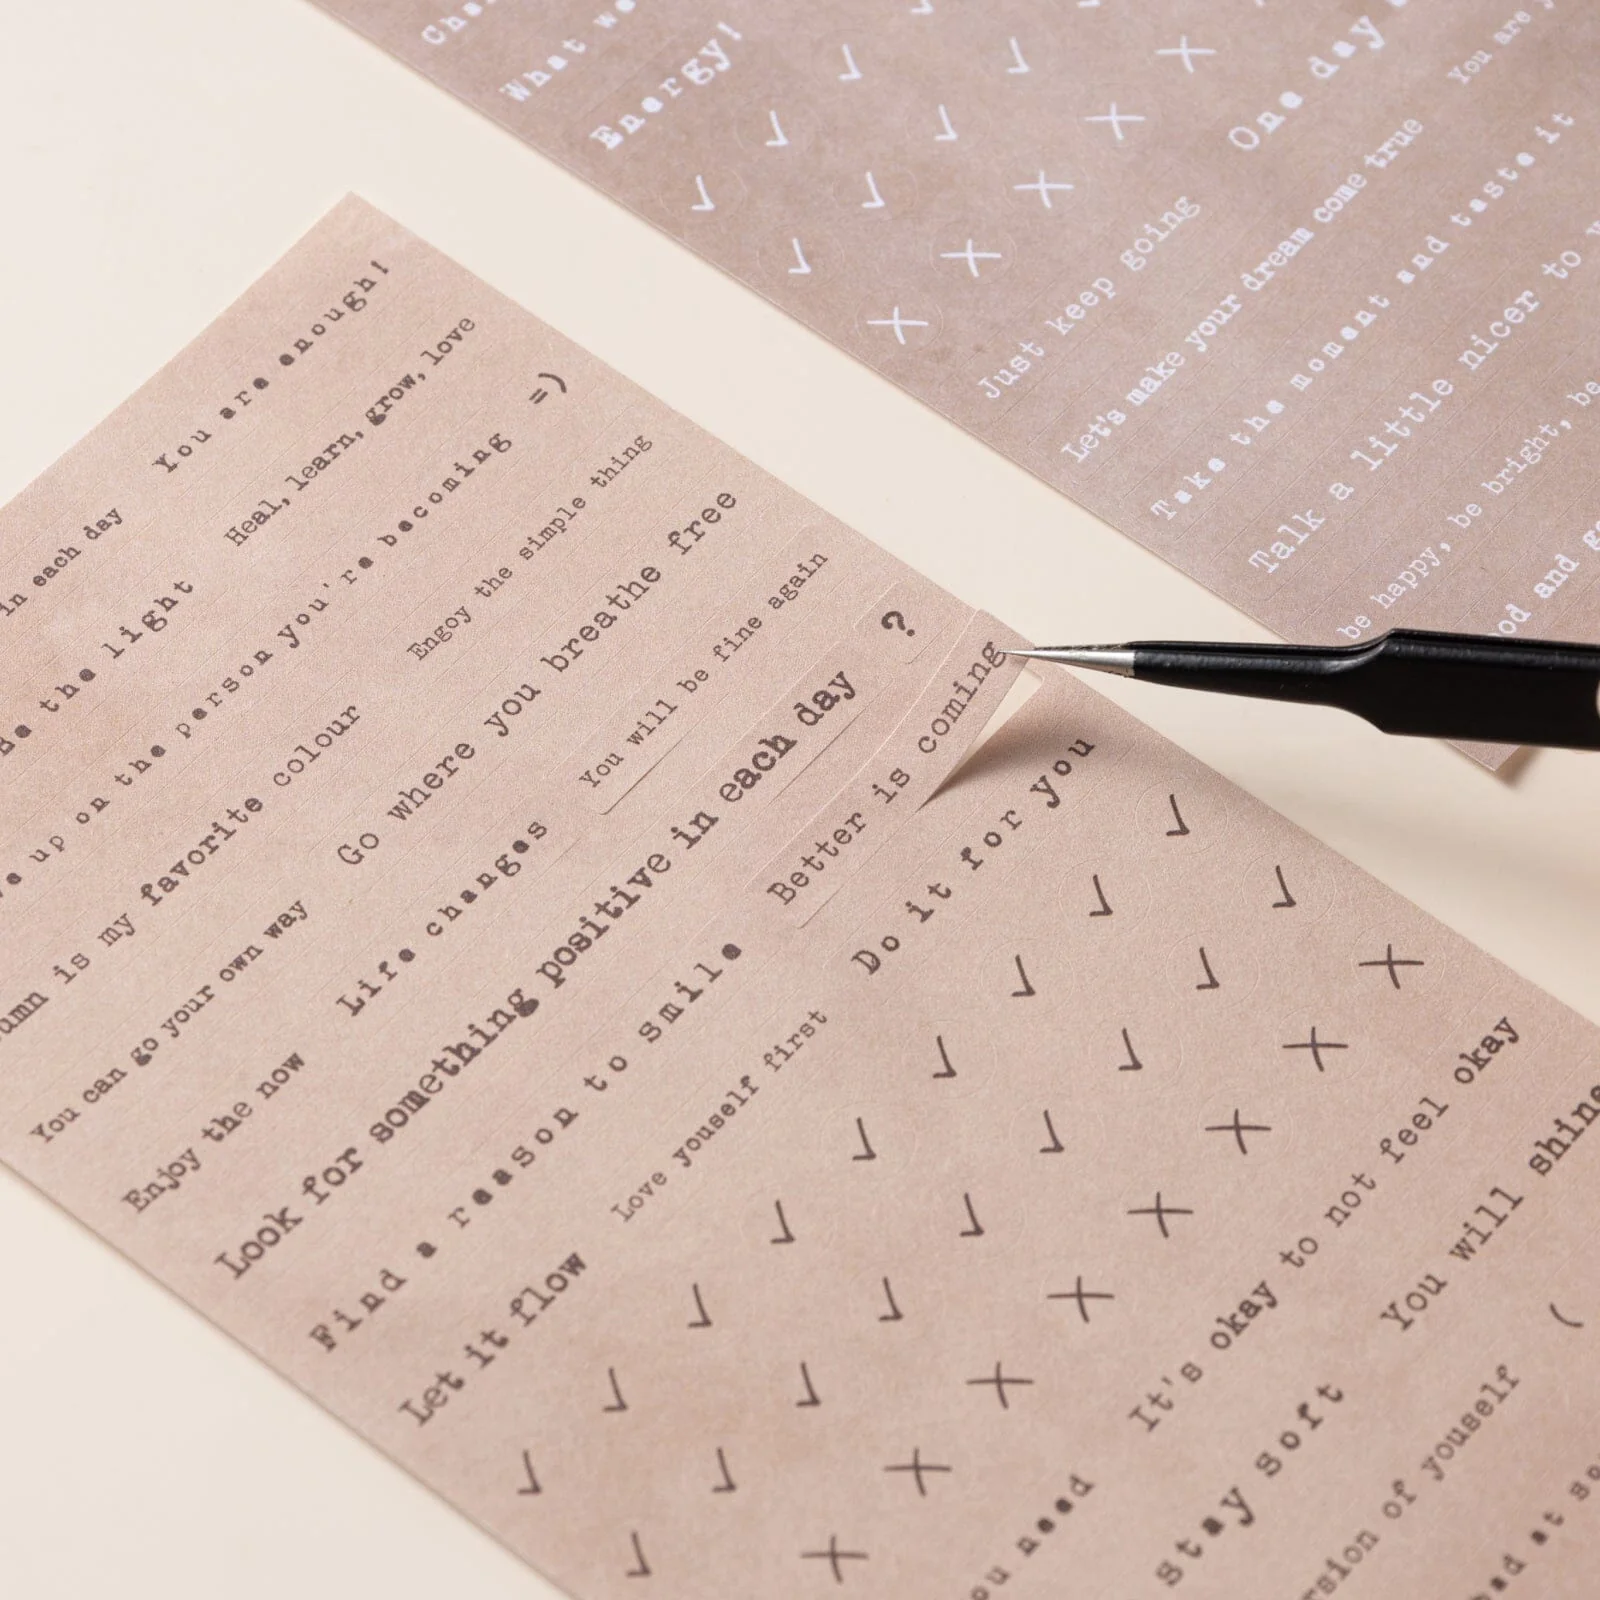 You are enough!
in each day
Heal, learn, grow, love
=)
Be the light
up on the person you're becoming
Engoy the simple thing
is my favorite colour
Go where you breathe free
You will be fine again
?
You can go your own way
Life changes
Enjoy the now
Look for something positive in each day
Better is coming
Find a reason to smile
Love youself first
Do it for you
Let it flow
It's okay to not feel okay
You will shine
need
Stay soft
of youself
(
at
What
Energy!
One day
You are
Just keep going
Let's make your dream come true
Take the moment and taste it
Talk a little nicer to
be happy, be bright, be
and